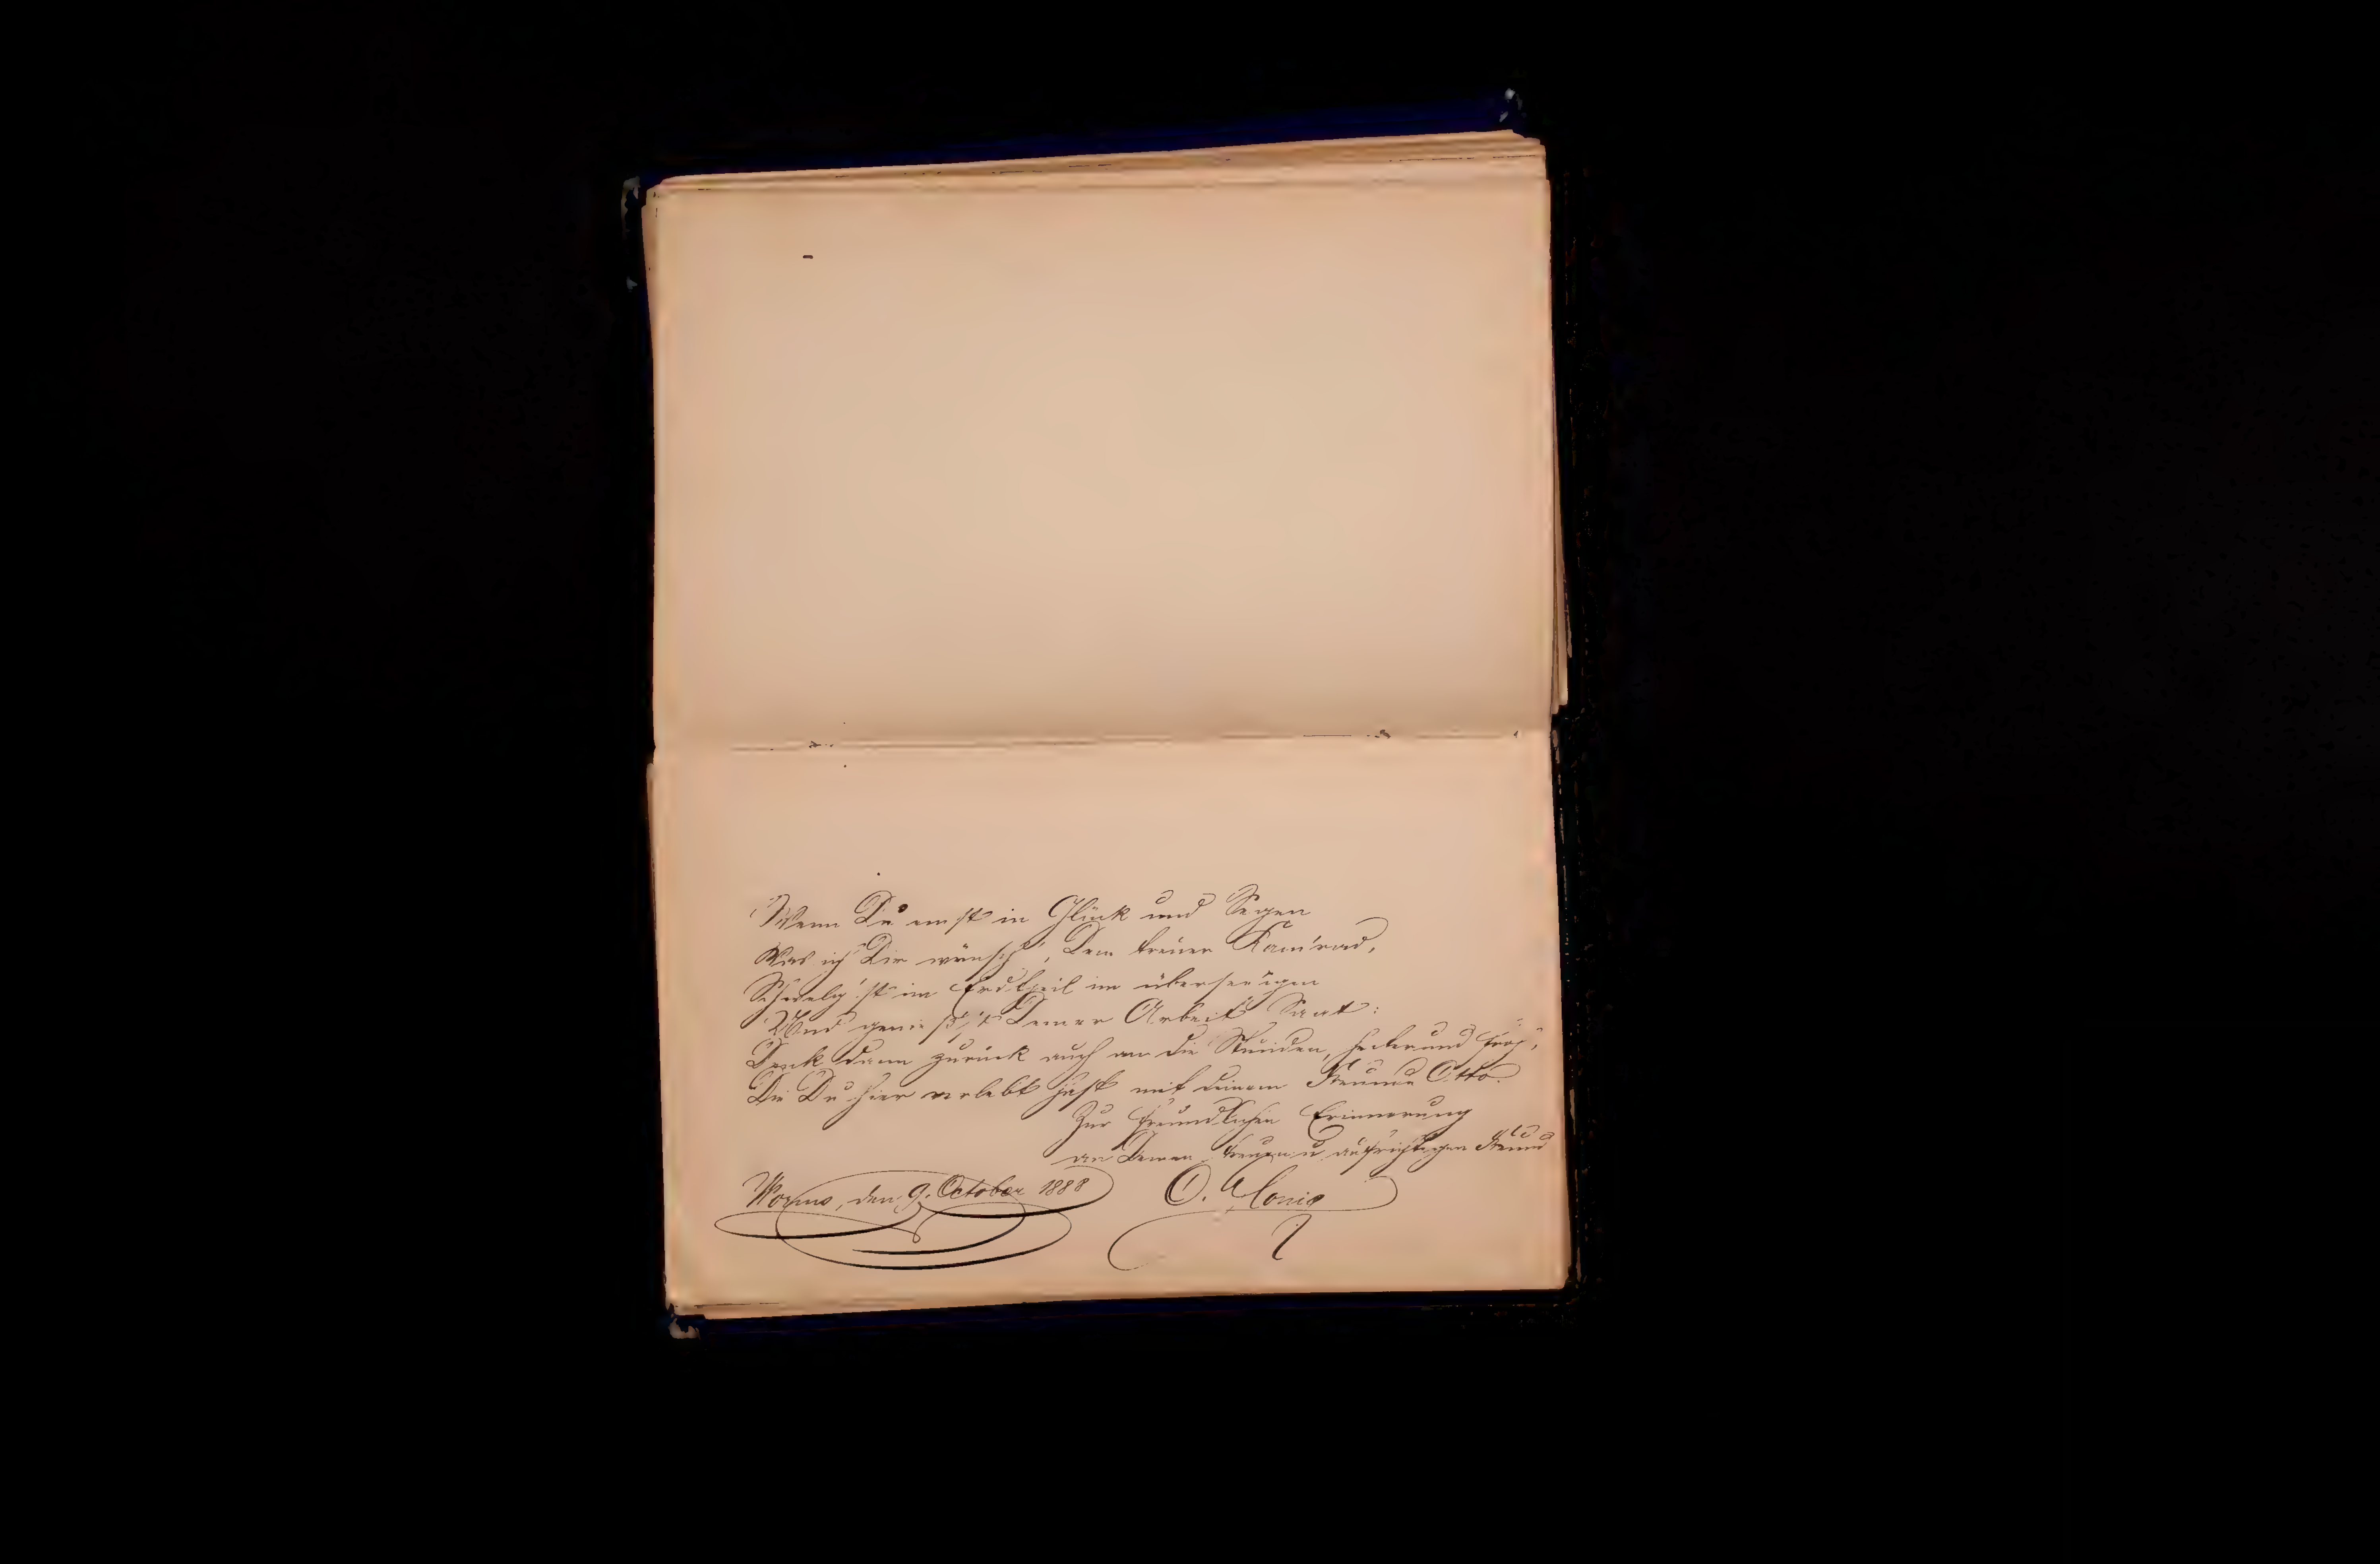 Wenn Du einst in Glück und Segen
Was ich Dir wünsch', Dem treuer Kam'rad,
Schwelg'st im Erdtheil im überseeigen
Und genieß't Deiner Arbeit Saat:
Denk dann zurück auch an die Stunden, heiter und froh,
Die Du hier verlebt hast mit deinem Freunde Otto.
Zur freundlichen Erinnerung
an Deinen treuen u. aufrichtigen Freund
Worms, den 9. October 1888
O.